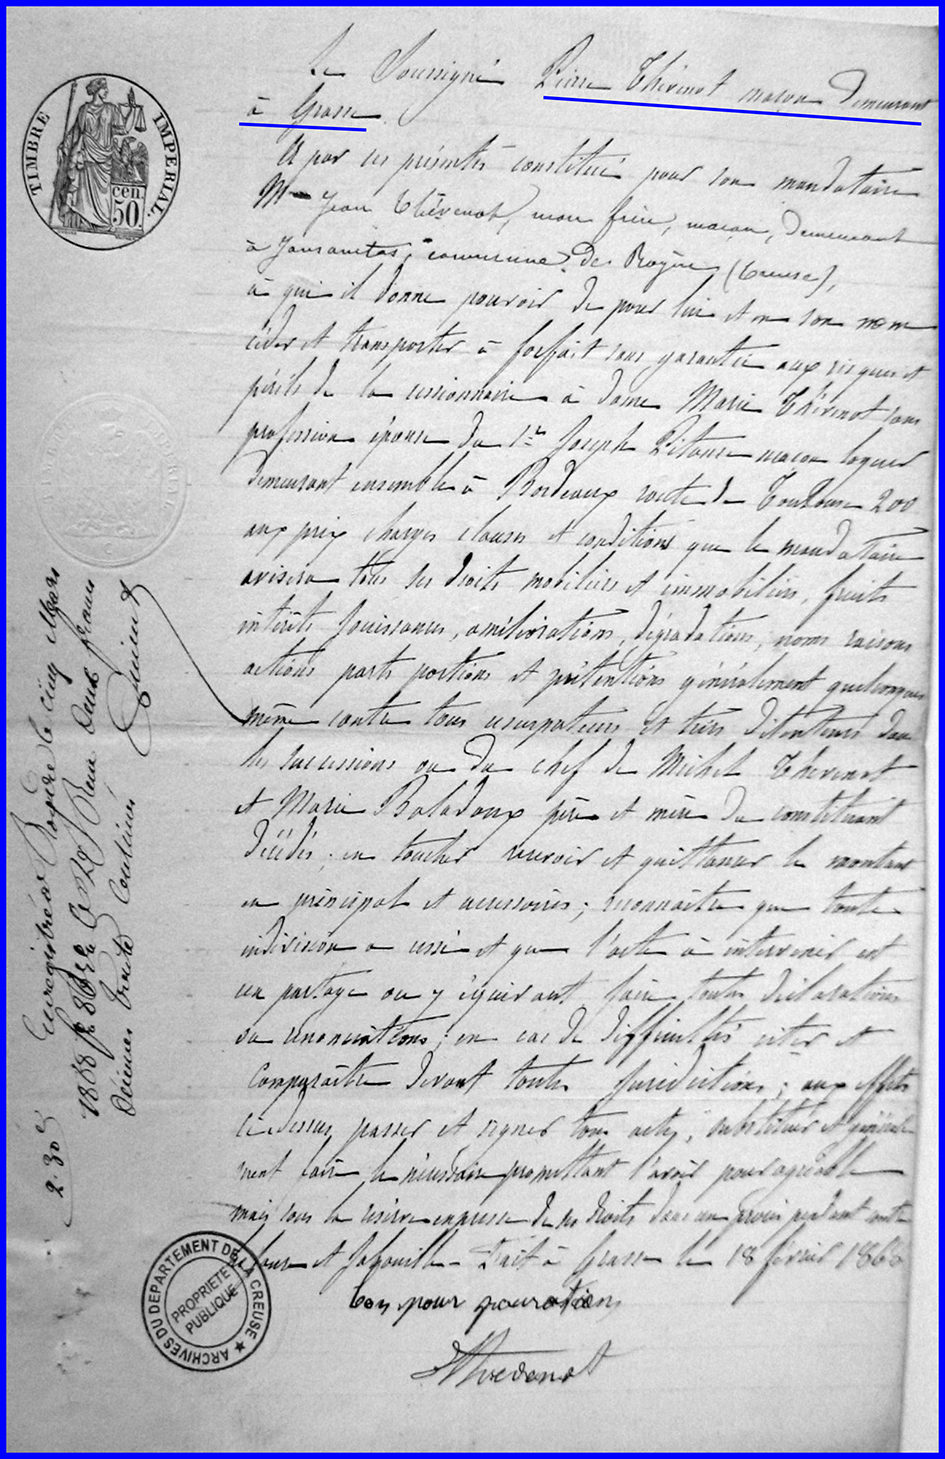 TIMBRE IMPERIAL.
cen. 50.
Le Soussigné Pierre Thévenot maçon demeurant
à Grasse
A par ces présentes constitué pour son mandataire
Mr Jean Thévenot, mon frère, maçon, demeurant
à Jansanetas, commune de Royère (Creuse),
à qui il donne pouvoir de pour lui et en son nom
céder et transporter à forfait sans garantie aux risques et
périls de la cessionnaire à dame Marie Thévenot sans
profession épouse du Sr Joseph Pitance maçon logeur
demeurant ensemble à Bordeaux route de Toulouse 200
aux prix charges clauses et conditions que le mandataire
avisera tous ses droits mobiliers et immobiliers, fruits
intérêts jouissances, améliorations, dégradations, noms raisons
actions parts portions et prétentions généralement quelconques
même contre tous usurpateurs et tiers détenteurs dans
les successions ou du chef de Michel Thevenot
et Marie Baladoux père et mère du constituant
décédés; en toucher recevoir et quittancer le montant
en principal et accessoires; reconnaître que toute
indivision a cessé et que l'acte à intervenir est
un partage ou y équivaut faire toutes déclarations
ou renonciations; en cas de difficultés citer et
Comparaître devant toutes juridictions; aux effets
ci-dessus passer et signer tous actes, substituer et générale
ment faire le nécessaire promettant l'avoir pour agréable
mais sous la réserve expresse de ses droits dans un procès pendant entre
et Fait à Grasse le 18 février 1868
bon pour pouvoir
Thevenot
Enregistré à Royère le cinq Mars
1868 Reçu deux francs
décimes trente centimes
2.30
ARCHIVES DU DEPARTEMENT DE LA CREUSE
PROPRIETE PUBLIQUE